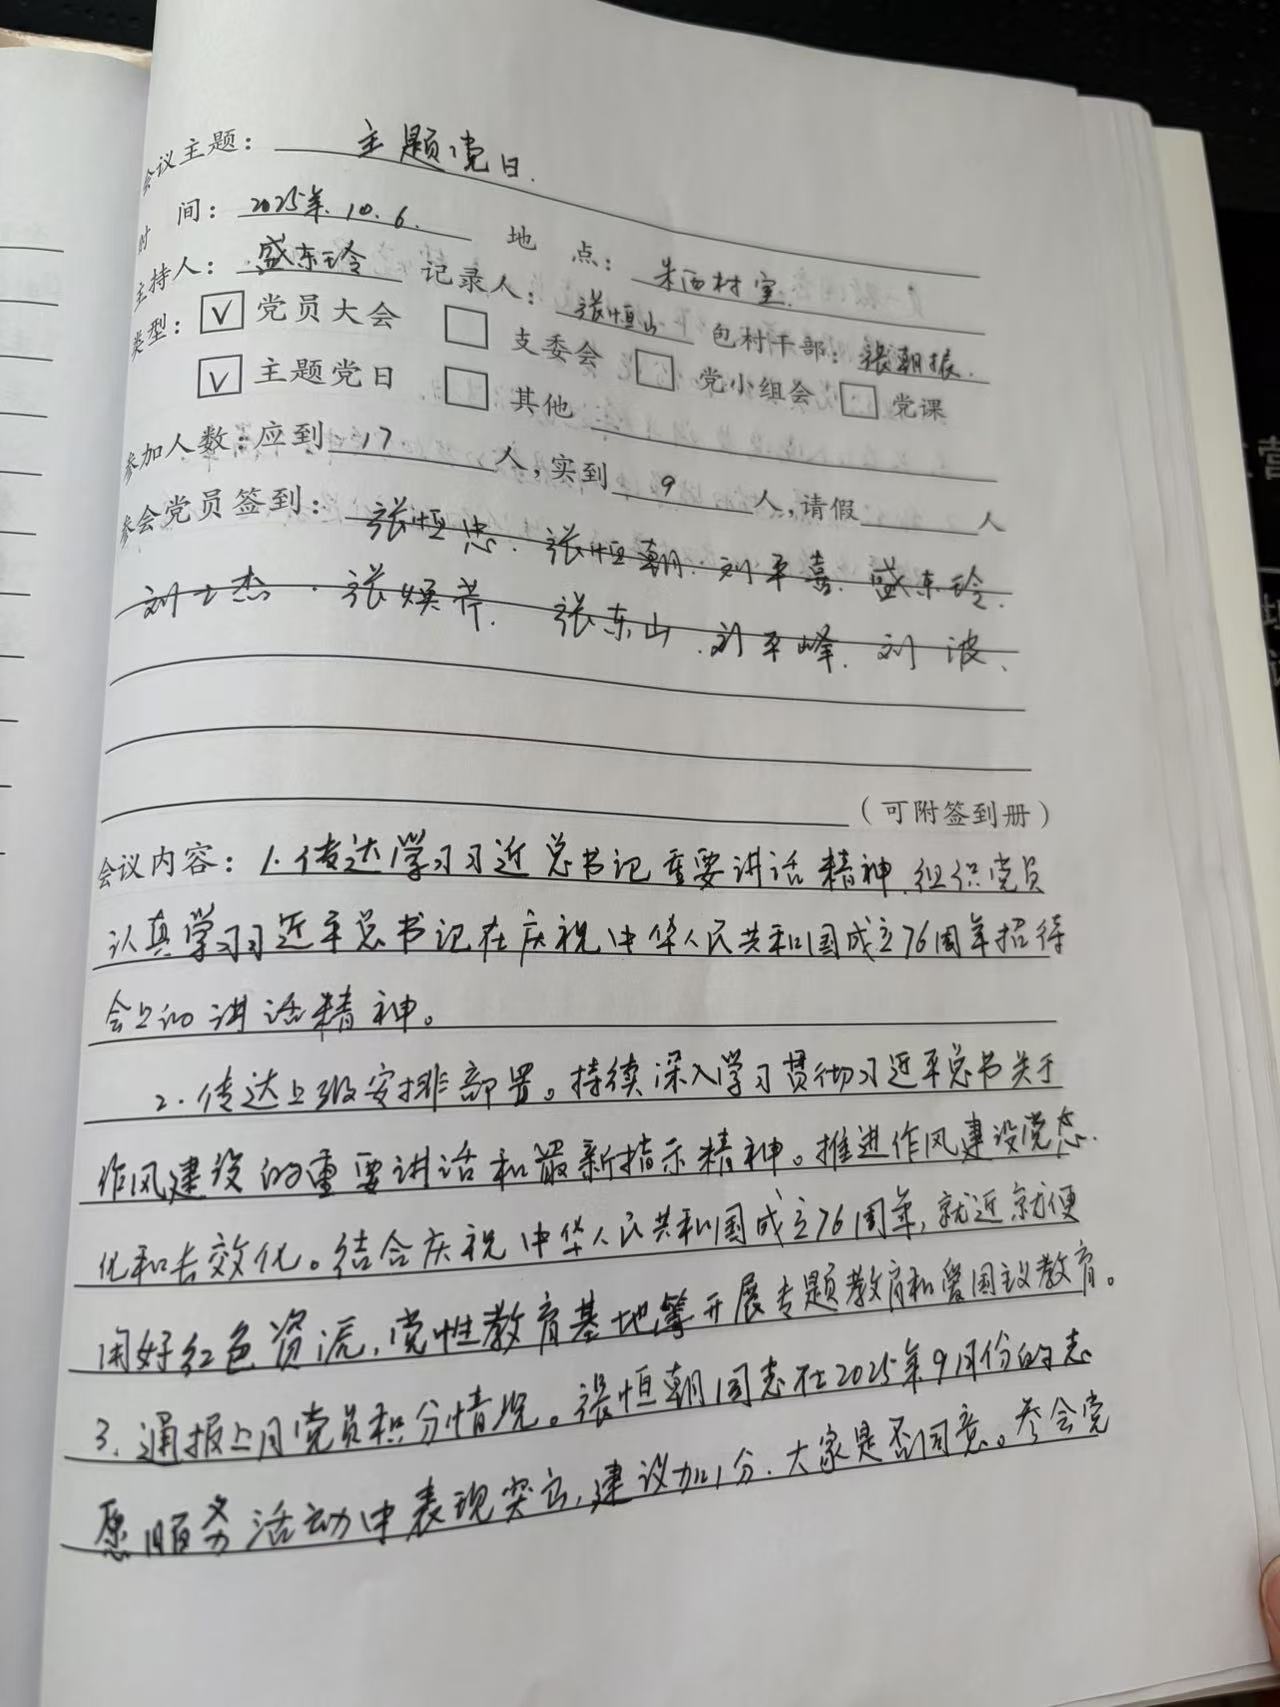 会议主题：主题党日.
时 间：2025年.10.6. 地 点：朱西村室.
主持人：盛东玲 记录人：张恒山 包村干部：张朝振.
类型：☑党员大会 □支委会 □党小组会 □党课
☑主题党日 □其他
参加人数：应到 17 人，实到 9 人，请假 人
参会党员签到：张恒忠. 张恒朝. 刘平喜. 盛东玲.
刘士杰. 张焕芹. 张东山. 刘平峰. 刘波、
（可附签到册）
会议内容：1.传达学习习近总书记重要讲话精神.组织党员
认真学习习近平总书记在庆祝中华人民共和国成立76周年招待
会上的讲话精神。
2.传达上级安排部署。持续深入学习贯彻习近平总书关于
作风建设的重要讲话和最新指示精神。推进作风建设党态.
化和长效化。结合庆祝中华人民共和国成立76周年，就近就便
用好红色资源，党性教育基地等开展专题教育和爱国主议教育。
3.通报上月党员积分情况。张恒朝同志在2025年9月份的志
愿服务活动中表现突出，建议加1分.大家是否同意。参会党